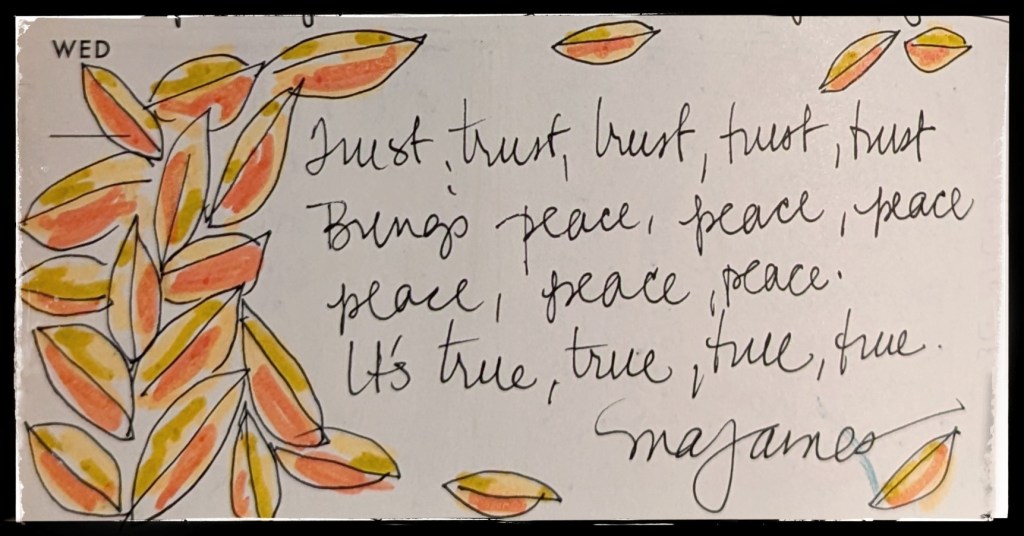 WED
Trust, trust, trust, trust, trust
Brings peace, peace, peace
peace, peace, peace.
It's true, true, true, true.
smajames